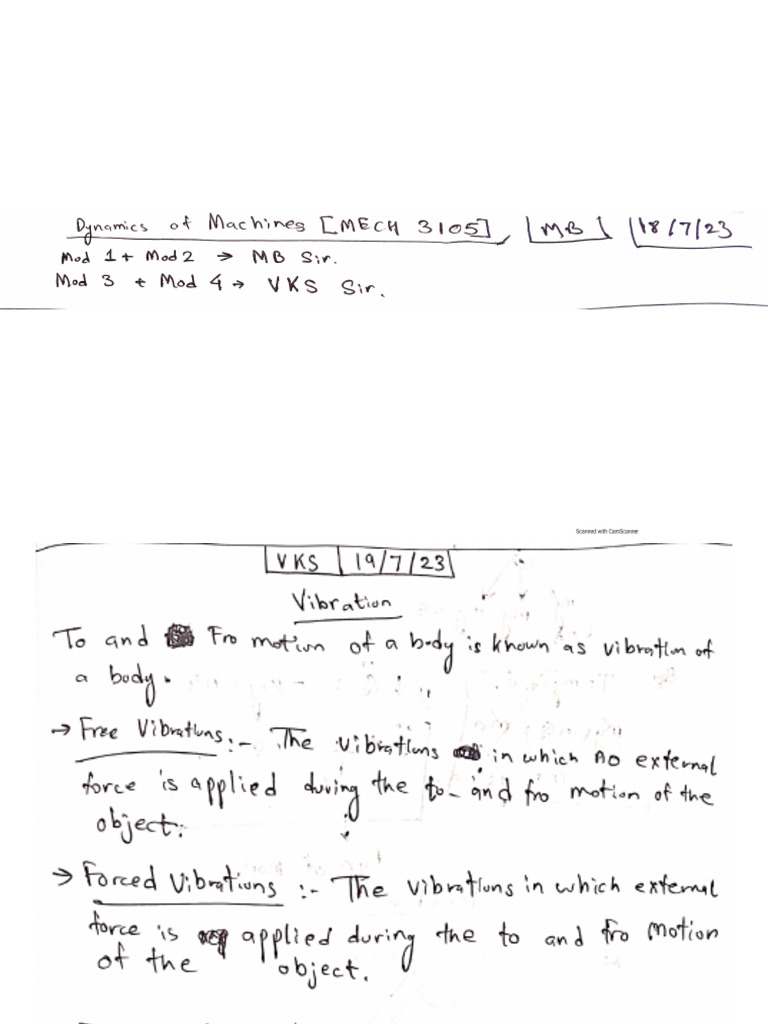 Dynamics of Machines [MECH 3105], MB 18/7/23
Mod 1 + Mod 2 → MB Sir.
Mod 3 + Mod 4 → VKS Sir.
Scanned with CamScanner
VKS | 19/7/23
Vibration
To and Fro motion of a body is known as vibration of
a body.
→ Free Vibrations :- The vibrations in which no external
force is applied during the to- and fro motion of the
object.
→ Forced Vibrations :- The vibrations in which external
force is applied during the to and fro motion
of the object.